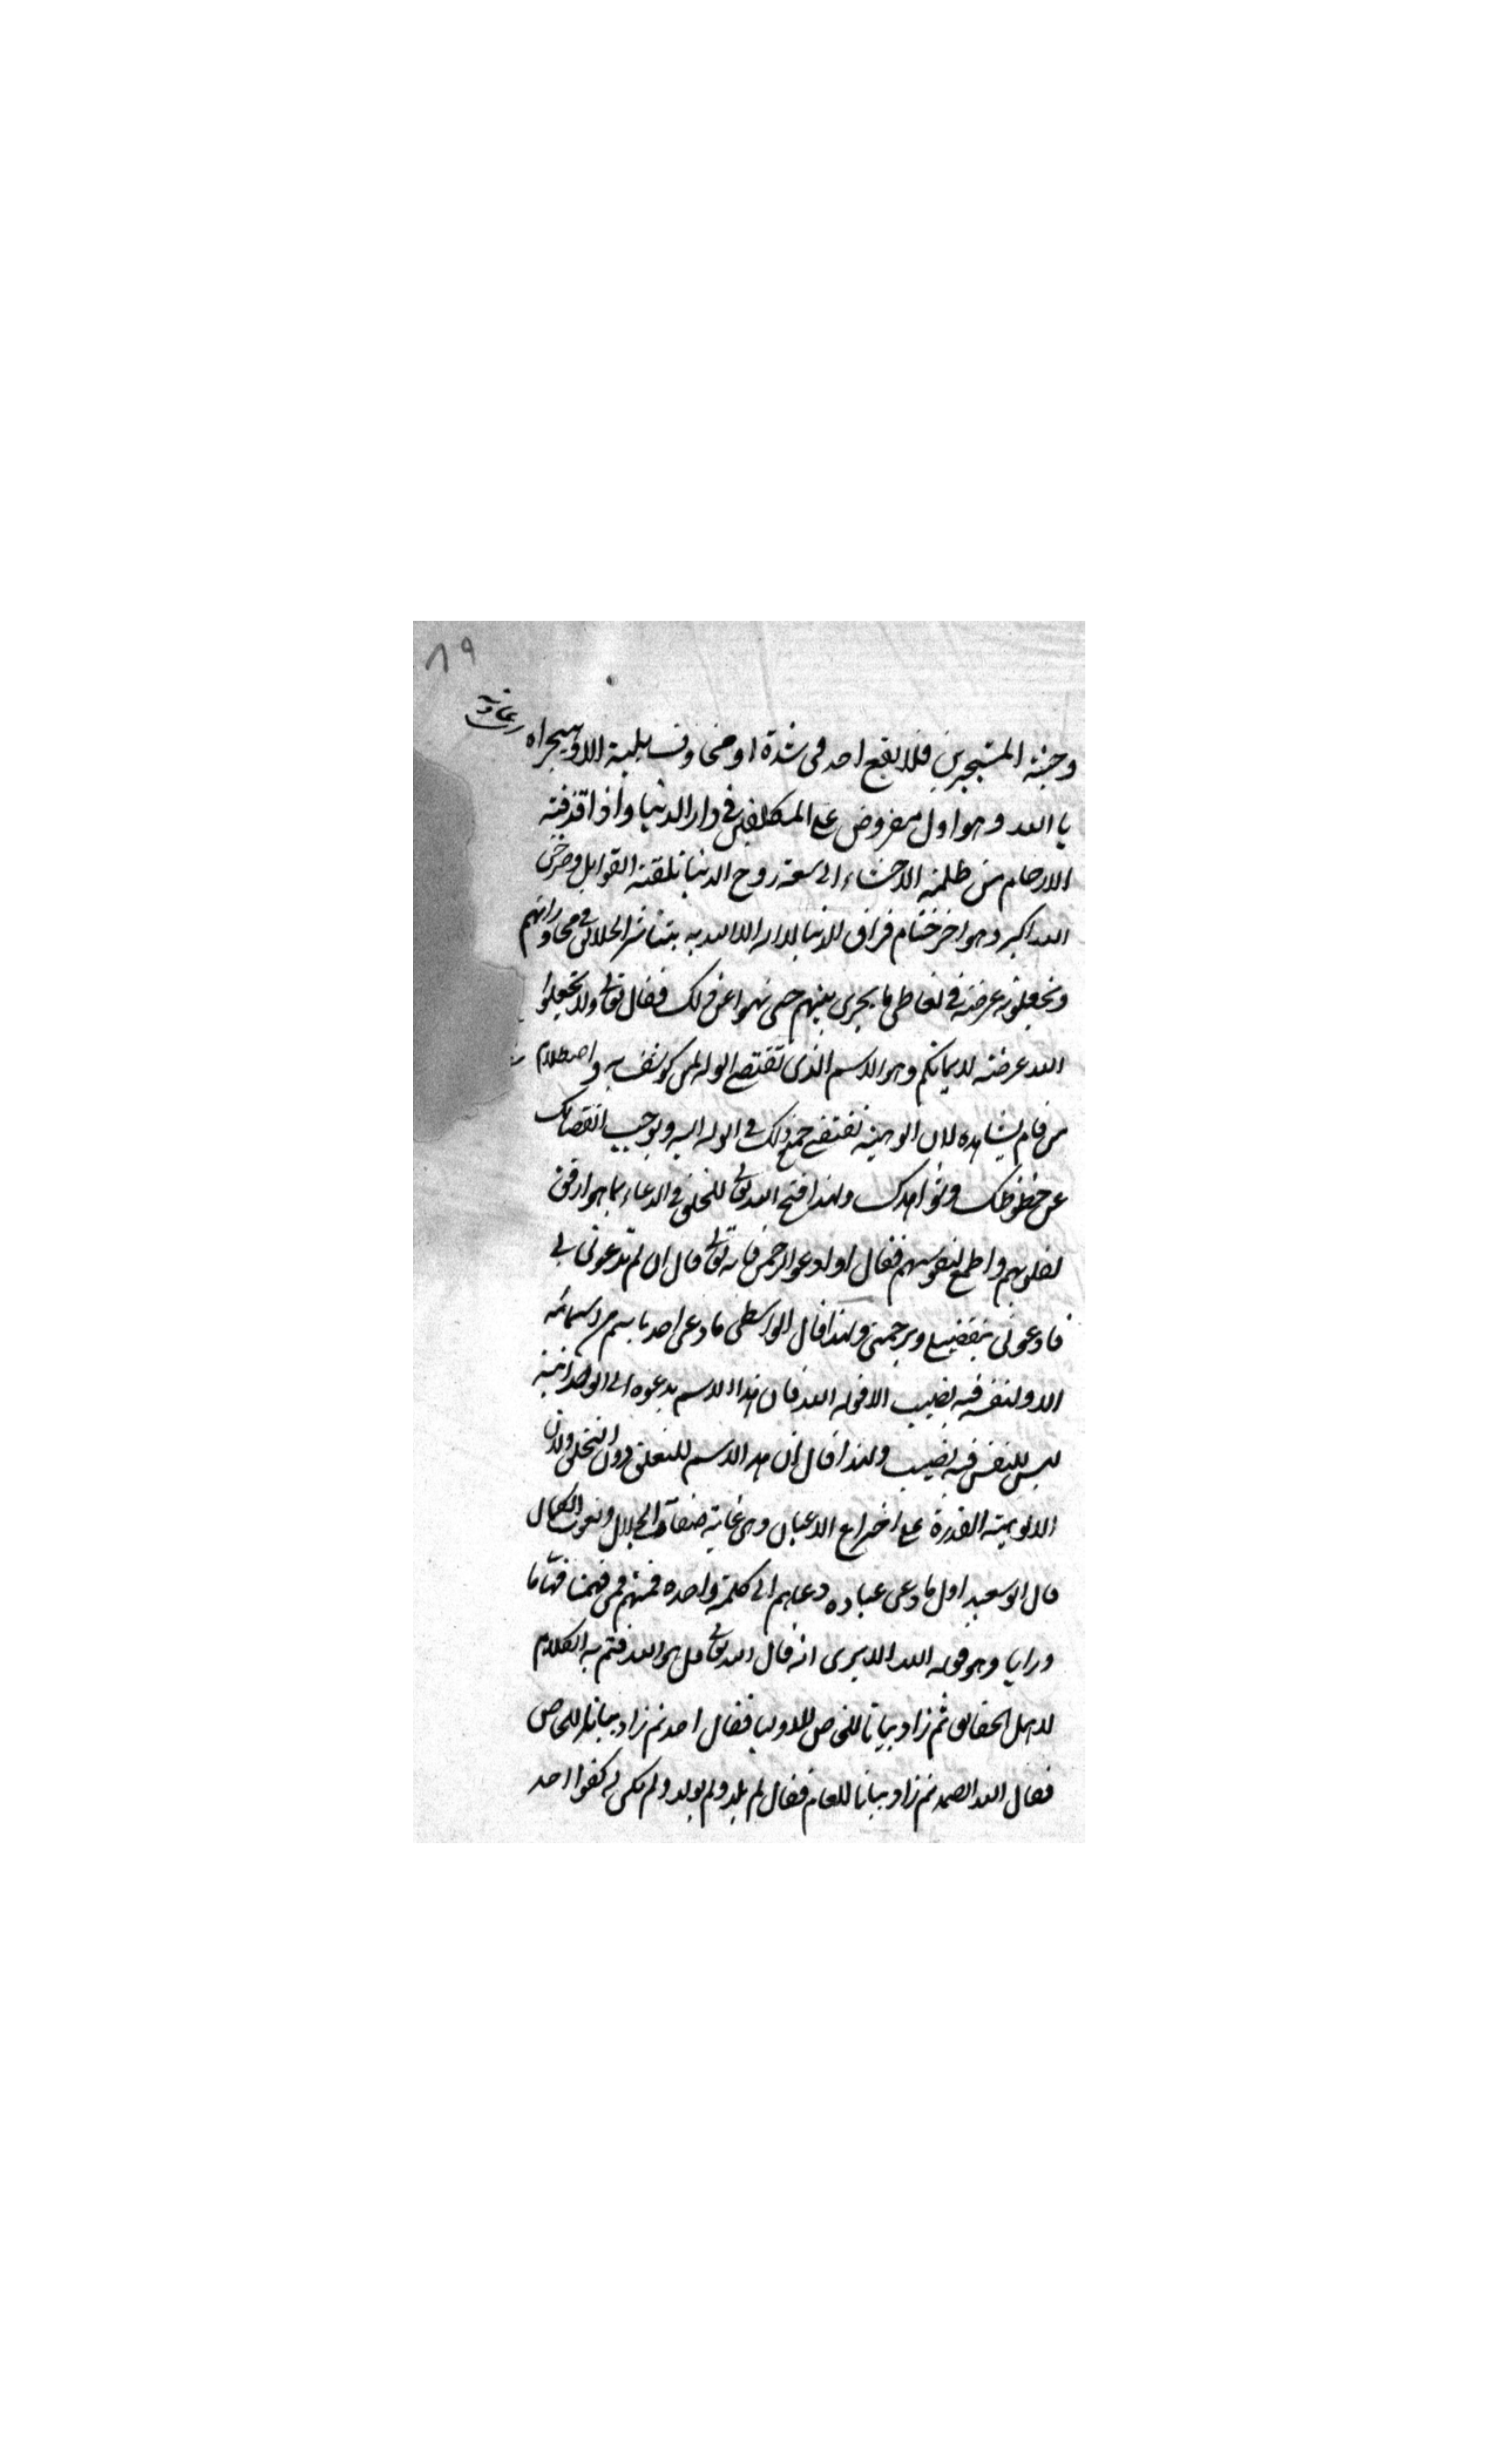 ١٩
وجنة المستجيرين فلا يقع احد فى شدة او مخاوف بلية الا وهجيراه
يا الله وهو اول مفروض على المكلفين فى دار الدنيا واذا قذفته
الارحام من ظلمة الاحشاء الى سعة روح الدنيا تلقته القوابل
الله اكبر وهو اخر ختام فراق الدنيا لا اله الا الله به يتناشر الخلائق فى محاوراتهم
ويجعلونه عرضة فى تعاطى ما يجرى بينهم حتى نهوا عن ذلك فقال تعالى ولا تجعلوا
الله عرضة لايمانكم وهو الاسم الذى تقتضى الوله لمن كوشف به واصطلام
من قام بشاهده لان الوهيته تقتضى جمع ذلك فى الوله اليه ويوجب انفصالك
عن حظوظك وشواهدك ولهذا فتح الله تعالى للخلق فى الدعاء بما هو ارفق
لقلوبهم واطمع لنفوسهم فقال او ادعوا الرحمن فانه تعالى قال ان لم تدعونى بى
فادعونى بفضلى وبرحمتى ولهذا قال الواسطى ما دعى احد باسم من اسمائه
الا ولنفسه فيه نصيب الا قوله الله فان هذا الاسم يدعوه الى الوحدانية
ليس للنفس فيه نصيب ولهذا قال ان هذا الاسم للتعلق دون التخلق ولان
الالوهية القدرة على اختراع الاعيان وهى غاية صفات الجلال ونعوت الكمال
قال ابو سعيد اول ما دعى عباده دعاهم الى كلمة واحدة فمن فهمها فهم ما
وراها وهو قوله الله الا يرى انه قال الله تعالى قل هو الله فتم به الكلام
لاهل الحقائق ثم زاد بيانا للخاص للاوليا فقال احد ثم زاد بيانا للخاص
فقال الله الصمد ثم زاد بيانا للعام فقال لم يلد ولم يولد ولم يكن له كفوا احد